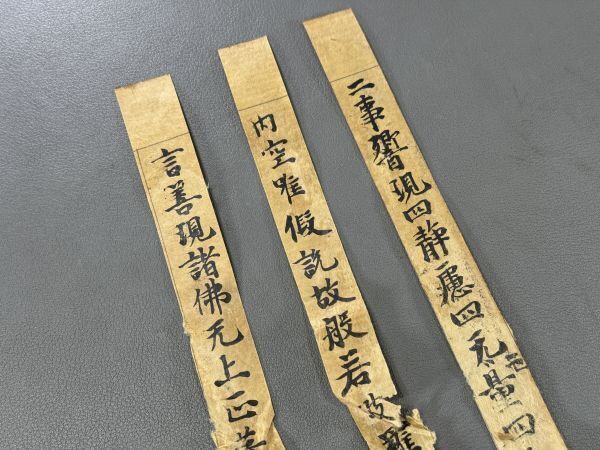 二事現四静慮四无量四
内空唯假說故般若波羅
言善現諸佛无上正等